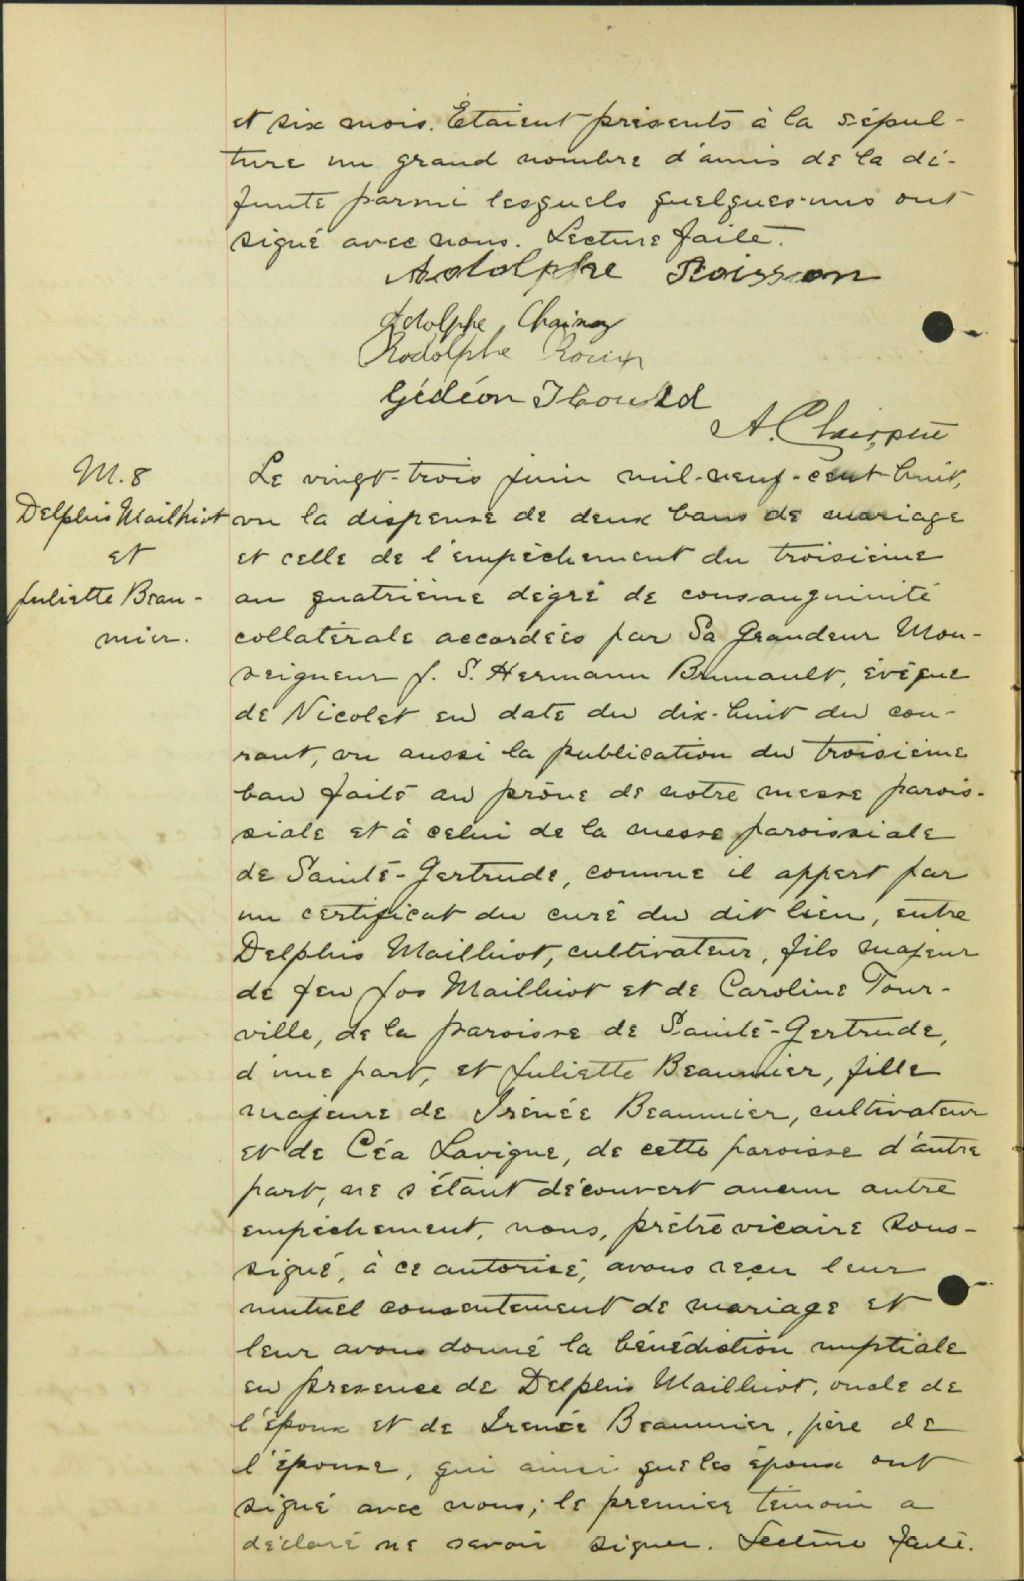 et six mois. Étaient présents à la sépul-
ture un grand nombre d'amis de la dé-
funte parmi lesquels quelques-uns ont
signé avec nous. Lecture faite.
Adolphe Poisson
Adolphe
Rodolphe
Gédéon
A.
M. 8
Delphis Mailhiot
et
Juliette Beau-
mier.
Le vingt-trois juin mil-neuf-cent-huit,
vu la dispense de deux bans de mariage
et celle de l'empêchement du troisième
au quatrième degré de consanguinité
collatérale accordées par Sa Grandeur Mon-
seigneur J. S. Hermann Brunault, évêque
de Nicolet en date du dix-huit du cou-
rant, vu aussi la publication du troisième
ban faite au prône de notre messe parois-
siale et à celui de la messe paroissiale
de Sainte-Gertrude, comme il appert par
un certificat du curé du dit lieu, entre
Delphis Mailhiot, cultivateur, fils majeur
de feu Jos Mailhiot et de Caroline Tour-
ville, de la paroisse de Sainte-Gertrude,
d'une part, et Juliette Beaumier, fille
majeure de Irénée Beaumier, cultivateur
et de Céa Lavigne, de cette paroisse d'autre
part, ne s'étant découvert aucun autre
empêchement, nous, prêtre vicaire sous-
signé, à ce autorisé, avons reçu leur
mutuel consentement de mariage et
leur avons donné la bénédiction nuptiale
en présence de Delphis Mailhiot, oncle de
l'époux et de Irénée Beaumier, père de
l'épouse, qui ainsi que les époux ont
signé avec nous; le premier témoin a
déclaré ne savoir signer. Lecture faite.